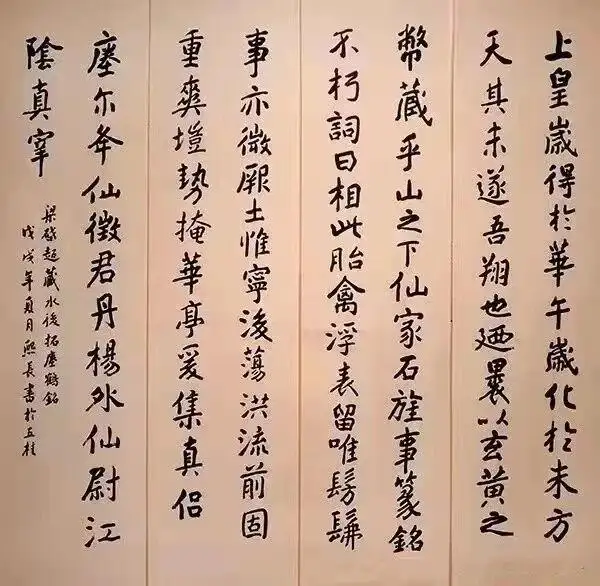 上皇歲得於華午歲化於朱方
天其未遂吾翔也迺裹以玄黃之
幣藏乎山之下仙家石旌事篆銘
不朽詞曰相此胎禽浮表留唯髣髴
事亦微厥土惟寧後蕩洪流前固
重爽塏勢掩華亭爰集真侶
瘞尔夅仙徵君丹楊外仙尉江
陰真宰
梁啟超藏水後拓瘞鶴銘
戊戌年夏月熙長書於五桂